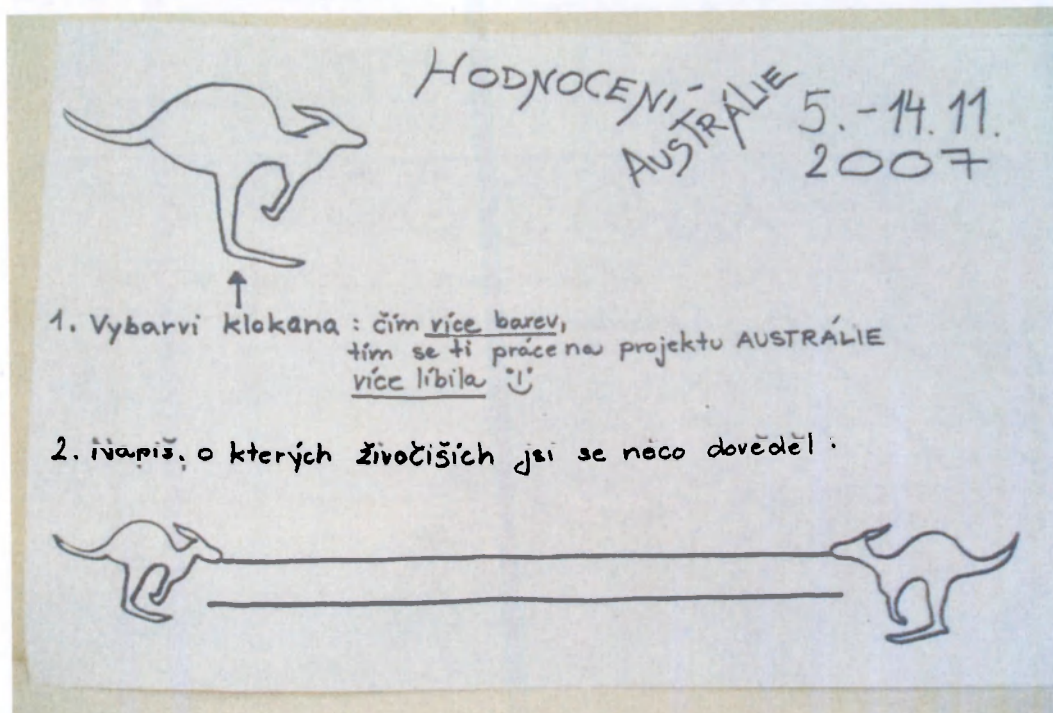 HODNOCENÍ
AUSTRÁLIE
5.-14.11.
2007
1. Vybarvi klokana : čím více barev,
tím se ti práce na projektu AUSTRÁLIE
více líbila
2. Napiš, o kterých živočiších jsi se něco dověděl :